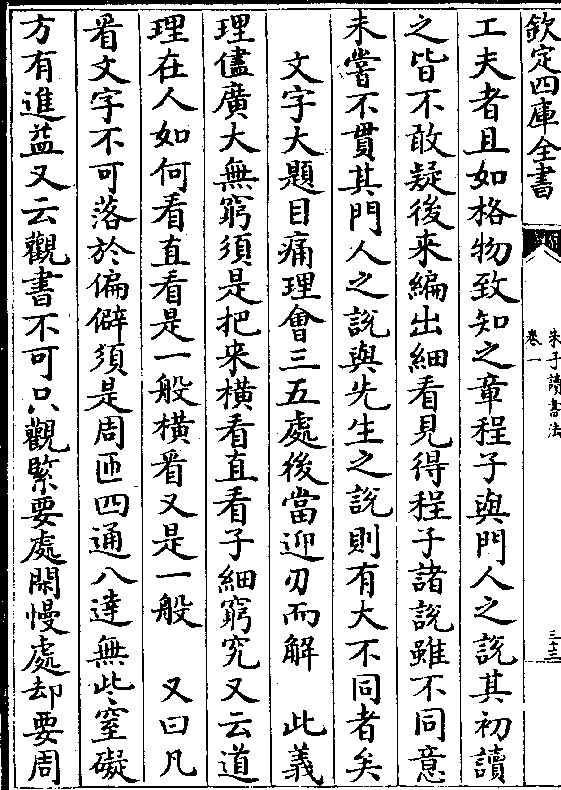 欽定四庫全書
朱子讀書法
卷一
三三
工夫者且如格物致知之章程子與門人之說其初讀
之皆不敢疑後來編出細看見得程子諸說雖不同意
未嘗不貫其門人之說與先生之說則有大不同者矣
文字大題目痛理會三五處後當迎刃而解　此義
理儘廣大無窮須是把來橫看直看子細窮究又云道
理在人如何看直看是一般橫看又是一般　又曰凡
看文字不可落於偏僻須是周匝四通八達無些窒礙
方有進益又云觀書不可只觀緊要處閑慢處却要周